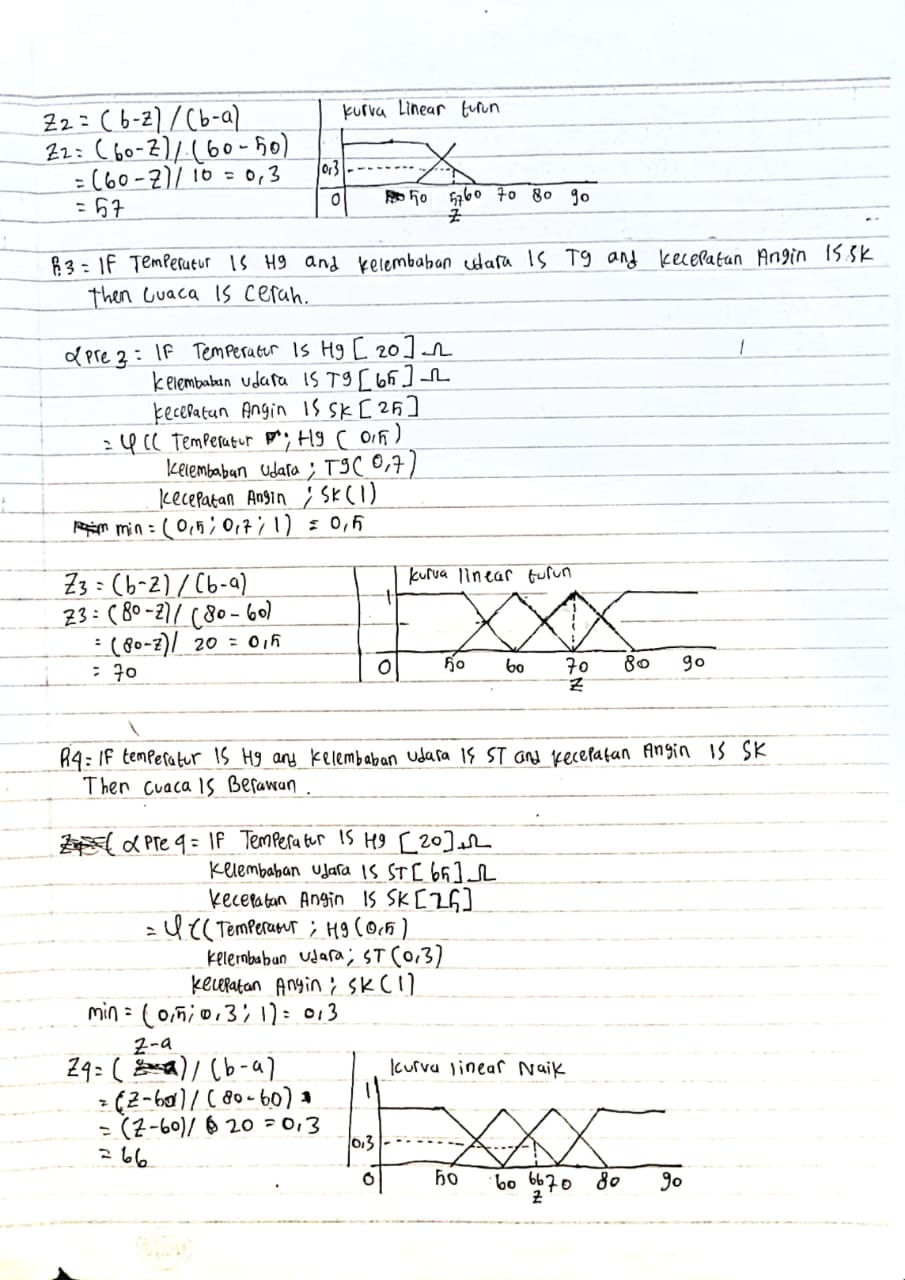 Z2 = (b-z) / (b-a)
Z2 = (60-z) / (60-50)
= (60-z) / 10 = 0,3
= 57
kurva Linear turun
0,3
0 50 57 60 70 80 90
Z
R3 = IF Temperatur IS Hg and kelembaban udara IS Tg and kecepatan Angin IS SK
then Cuaca IS Cerah.
α Pre 3 = IF Temperatur IS Hg [20] Ω
kelembaban udara IS Tg [65] Ω
kecepatan Angin IS SK [25]
= Ψ (( Temperatur ; Hg (0,5)
kelembaban udara ; Tg (0,7)
kecepatan Angin ; SK (1)
min = (0,5 ; 0,7 ; 1) = 0,5
Z3 = (b-z) / (b-a)
Z3 = (80-z) / (80-60)
= (80-z) / 20 = 0,5
= 70
kurva linear turun
1
0 50 60 70 80 90
Z
R4 = IF temperatur IS Hg and kelembaban udara IS ST and kecepatan Angin IS SK
Then Cuaca IS Berawan.
α Pre 4 = IF Temperatur IS Hg [20] Ω
Kelembaban udara IS ST [65] Ω
kecepatan Angin IS SK [25]
= Ψ (( Temperatur ; Hg (0,5)
kelembaban udara ; ST (0,3)
kecepatan Angin ; SK (1)
min = (0,5 ; 0,3 ; 1) = 0,3
z-a
Z4 = ( ) / (b-a)
= (z-60) / (80-60)
= (z-60) / 20 = 0,3
= 66
kurva linear Naik
1
0,3
0 50 60 66 70 80 90
Z